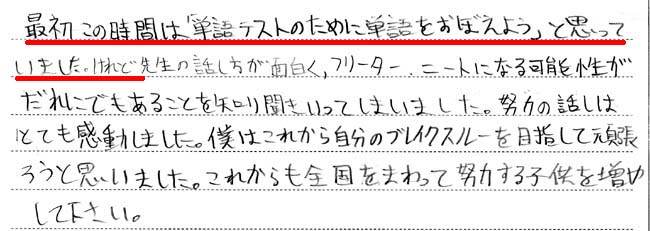 最初この時間は「単語テストのために単語をおぼえよう」と思って
いました。けれど先生の話し方が面白く、フリーター、ニートになる可能性が
だれにでもあることを知り聞きいってしまいました。努力の話しは
とても感動しました。僕はこれから自分のブレイクスルーを目指して頑張
ろうと思いました。これからも全国をまわって努力する子供を増や
して下さい。